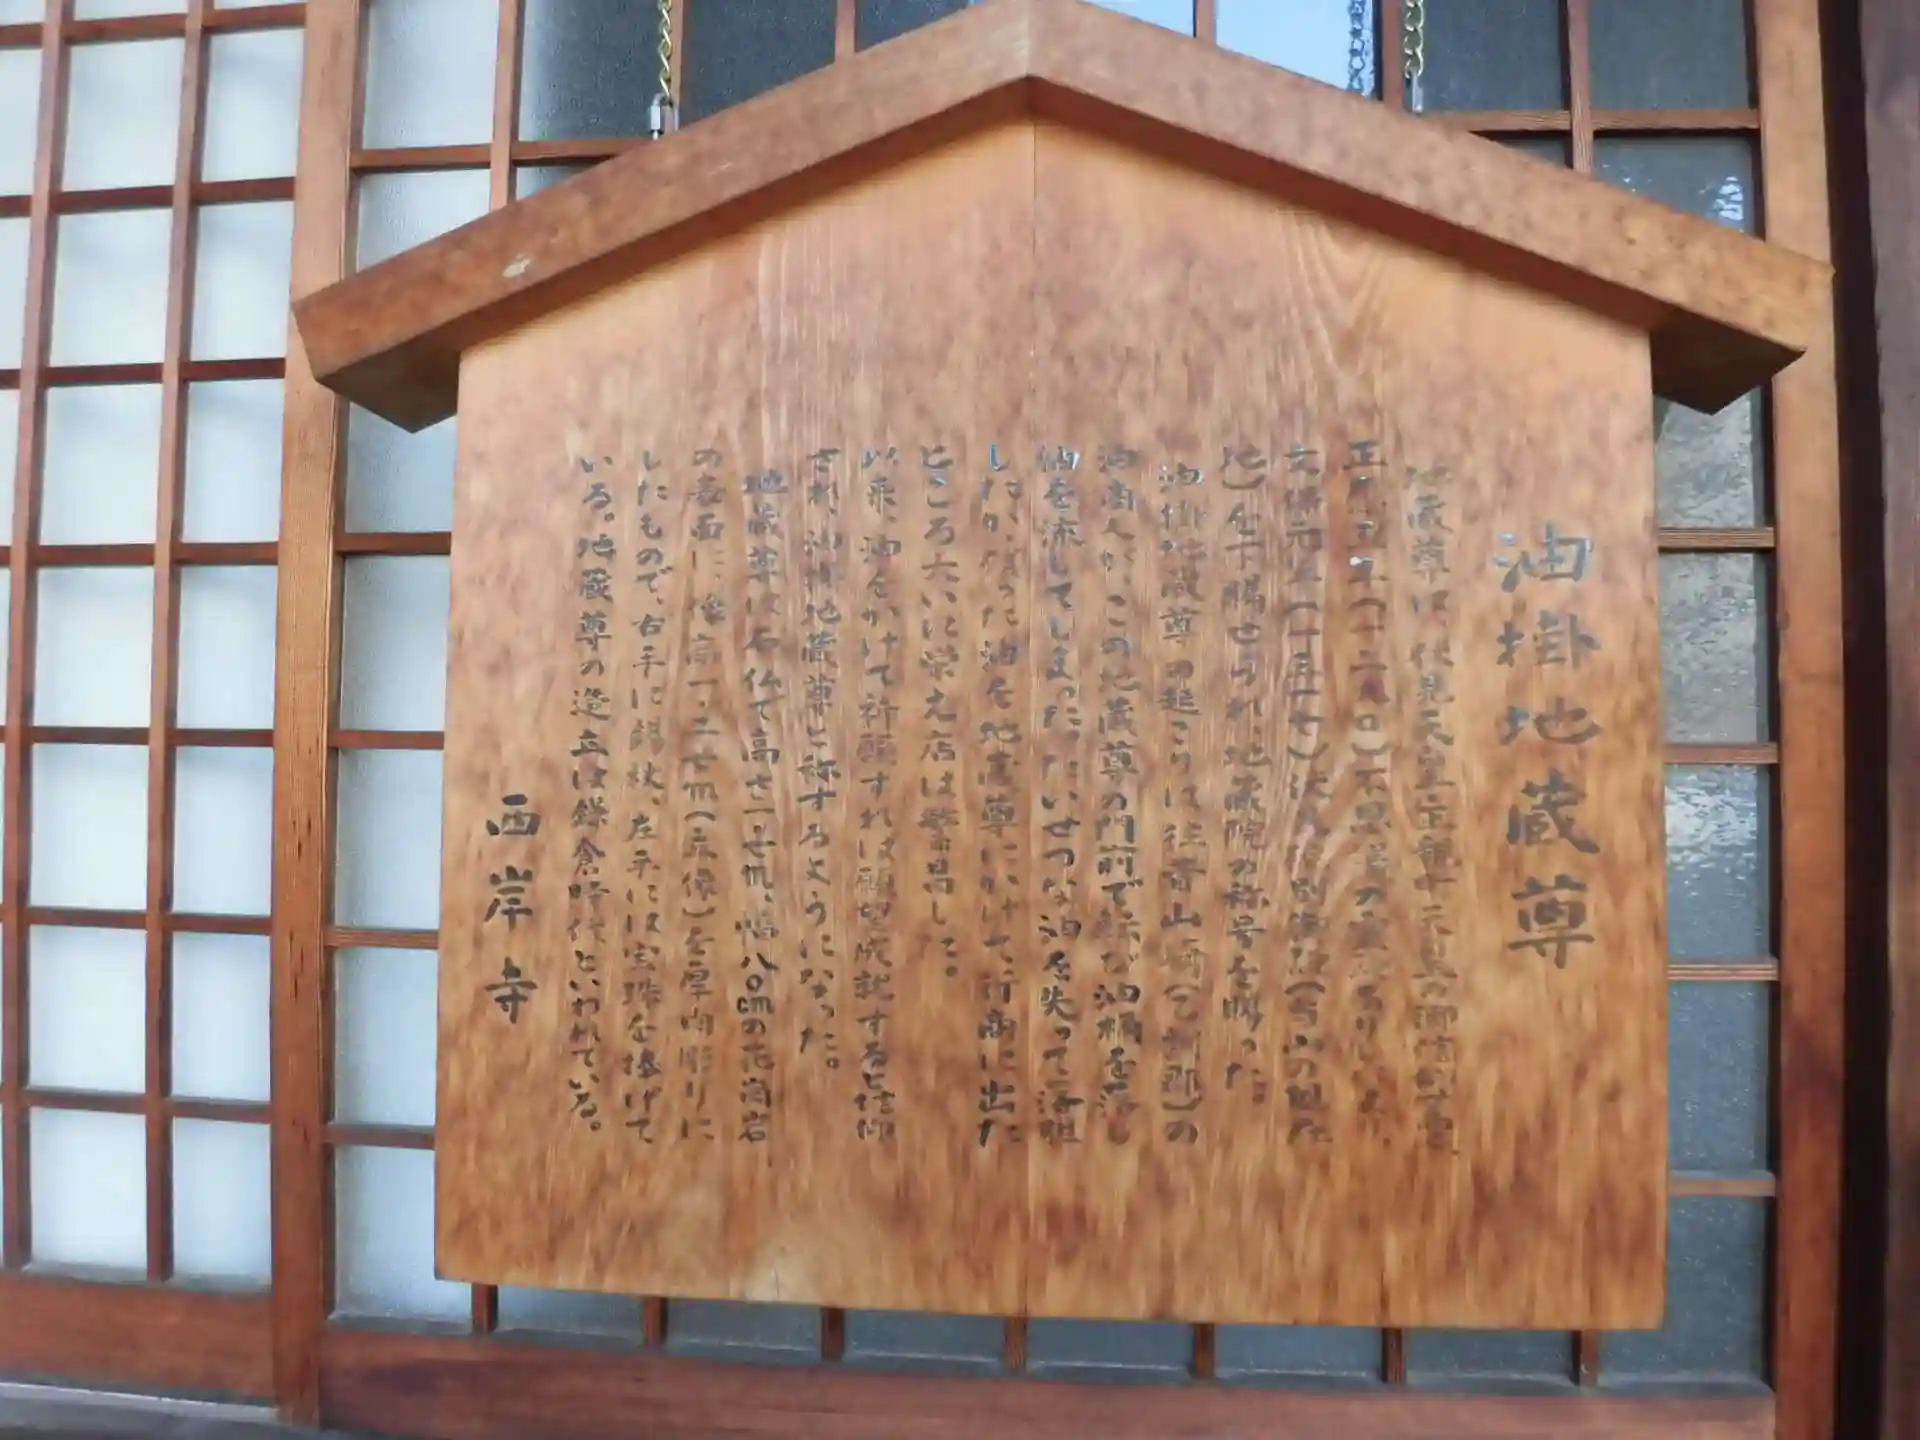 油掛地蔵尊
地蔵尊は伏見天皇
正 五年(一二九〇)不思 の
(一三一七)伏見 (当山の現在
地)を下賜せられ、地蔵院の称号を賜った。
油掛地蔵尊の起こりは往昔山崎(乙訓郡)の
油商人が、この地蔵尊の門前で転び油桶を落し
油を流してしまった。たいせつな油を失って落胆
したが、残った油を地蔵尊にかけて行商に出た
ところ大いに栄え店は繁昌した。
以来、油をかけて祈願すれば願望成就すると信仰
され、油掛地蔵尊と称するようになった。
地蔵尊は石仏で高さ一・七m、幅八〇cmの花崗岩
の表面に、像高一・二七m(立像)を厚肉彫りに
したもので、右手に錫杖、左手には宝珠を捧げて
いる。地蔵尊の造立は鎌倉時代といわれている。
西岸寺